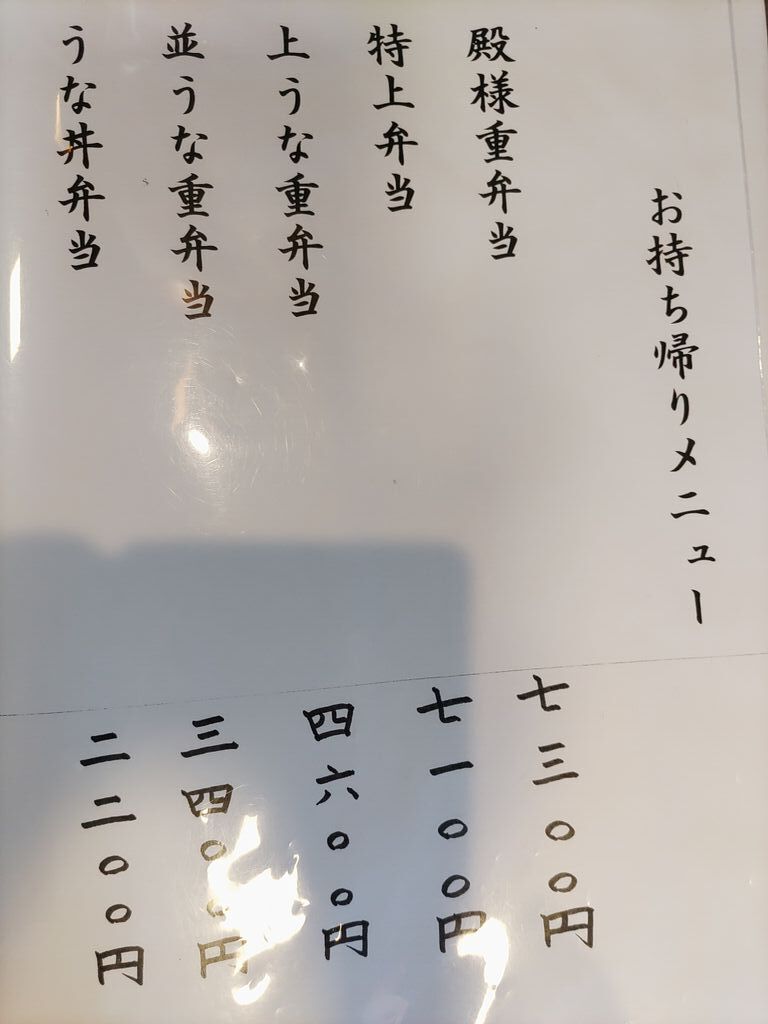 お持ち帰りメニュー
殿様重弁当 七三〇〇円
特上弁当 七一〇〇円
上うな重弁当 四六〇〇円
並うな重弁当 三四〇〇円
うな丼弁当 二二〇〇円